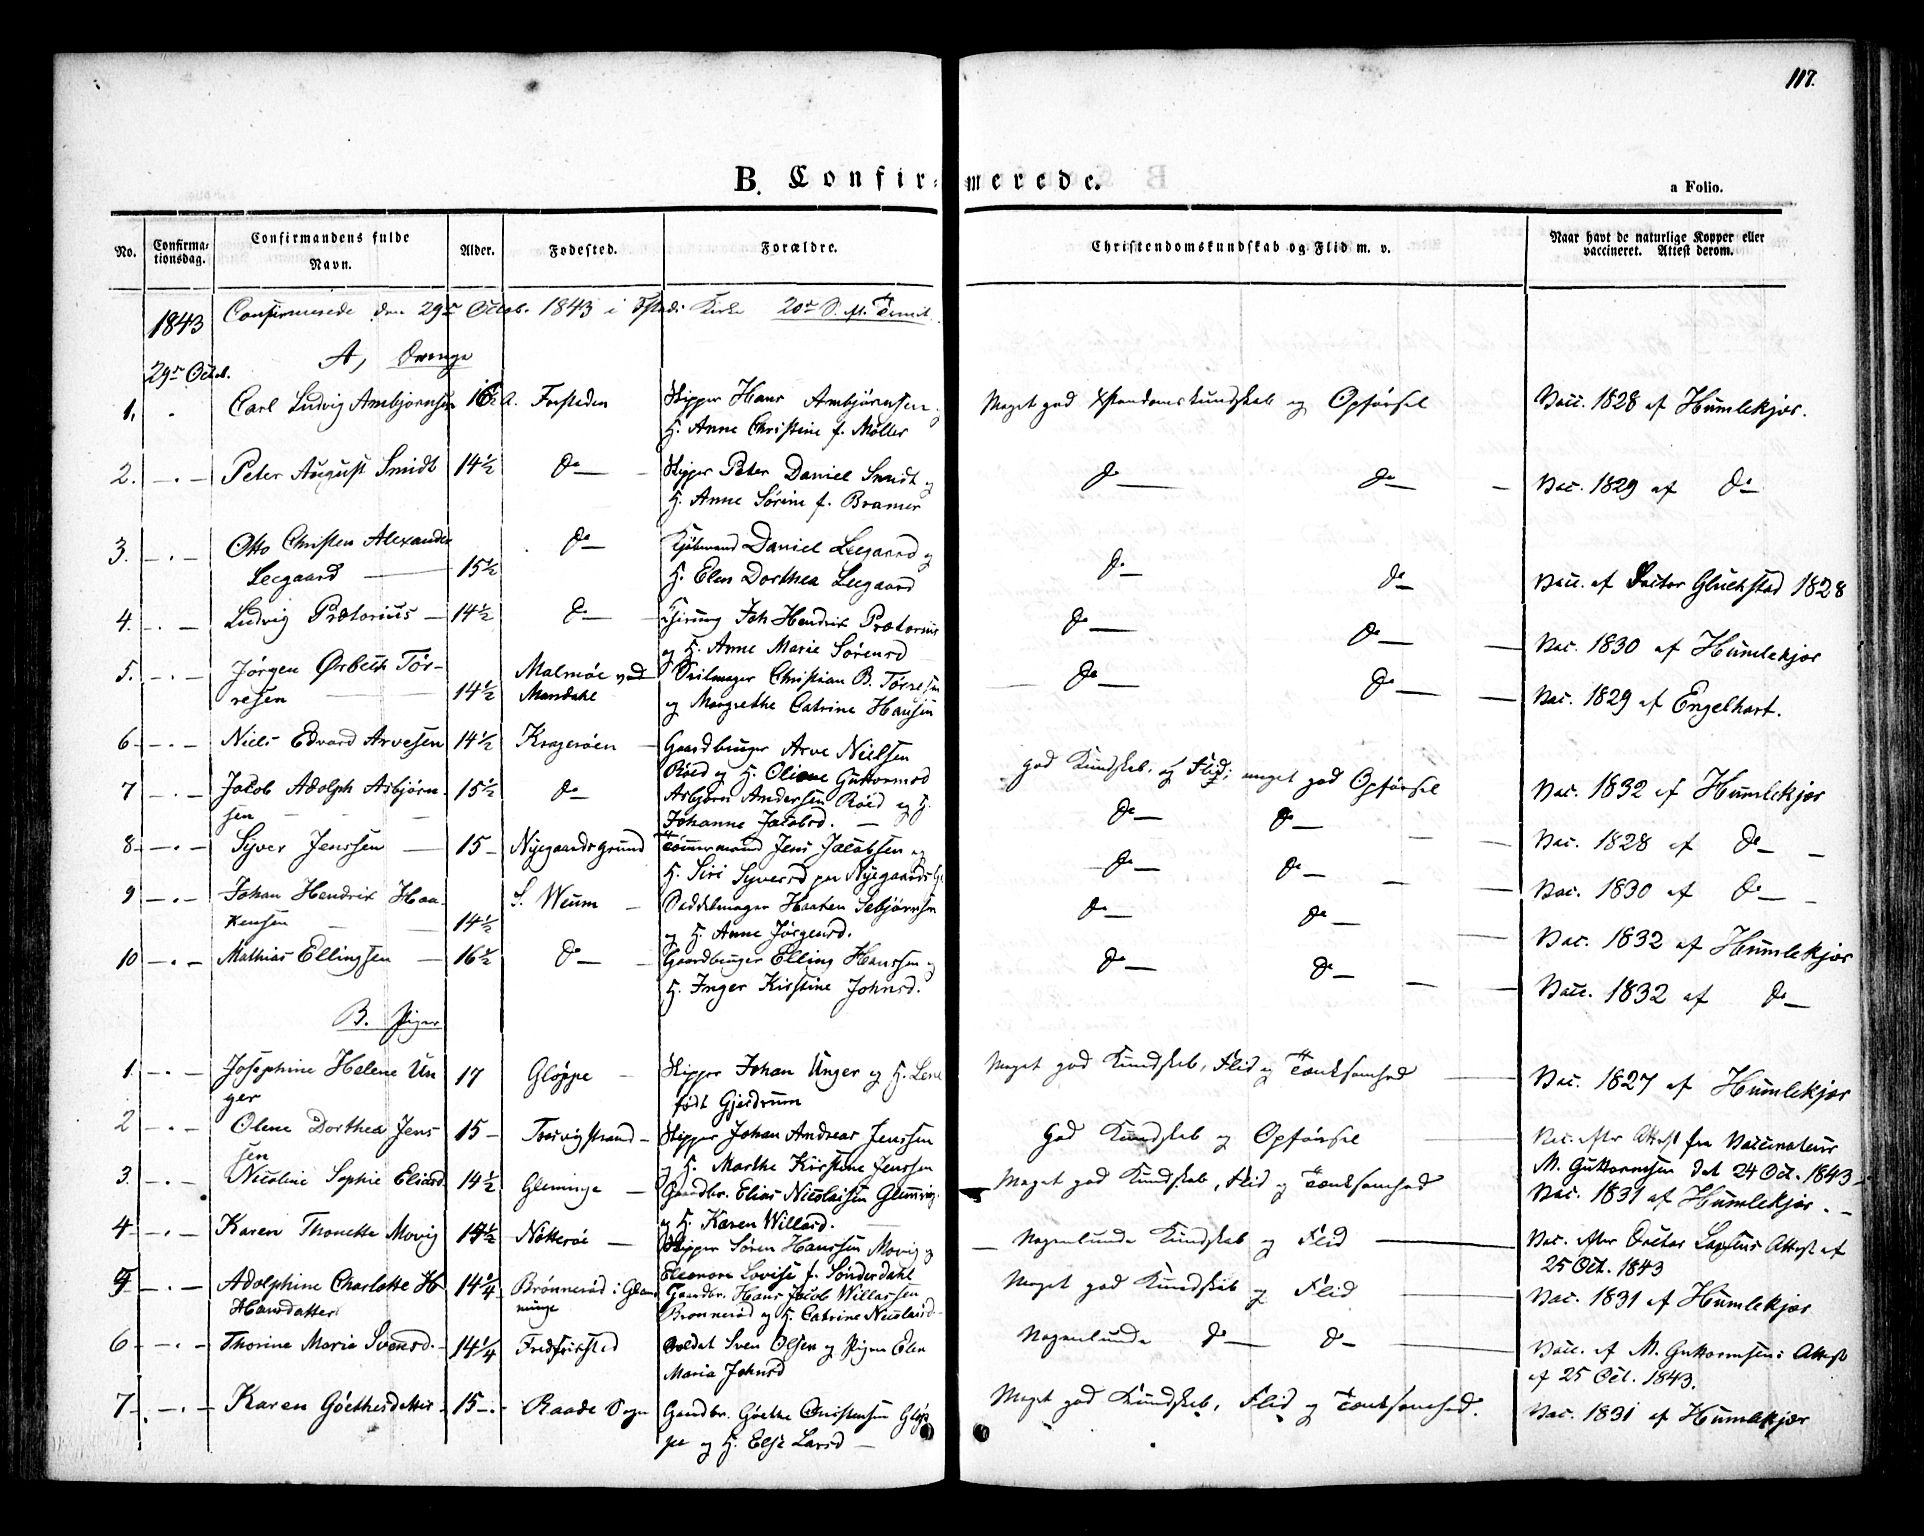 117.
B. Confir= merede.
a Folio.
No. Confirma-tionsdag. Confirmandens fulde Navn. Alder. Fødested. Forældre. Christendomskundskab og Flid m. v. Naar havt de naturlige Kopper eller vaccineret. Attest derom.
1843 Confirmerede den 29de Octob. 1843 i Kirke 20de S. Ft. Trinit.
29de Octob. A, Drenge
1. Carl Ludvig Ambjørnsen 16 Forstaden Skipper Hans Ambjørnsen og Meget god Xstendomskundskab og Opførsel Vacc. 1828 af Humlekjær.
H. Anne Christine f. Møller
2. Peter August Smidt 14½ Do Skipper Peter Daniel Smidt og Do Do Vac. 1829 af Do
H. Anne Sørine f. Bramer
3. Otto Christen Alexander Do Kjøbmand Daniel Leegaard og
Leegaard 15½ H. Elen Dorthea Leegaard Do Do Vacc. af Doctor Gluckstad 1828
4. Ludvig Prætorius 14½ Do Joh Hendrik Prætorius Do Do Vac. 1830 af Humlekjær
og H. Anne Marie Sørensd
5. Jørgen Ørbech Tør- Malmøe ved Seilmager Christian B. Tørresen
resen 14½ Mandahl og Margrethe Catrine Hansen Do Do Vac. 1829 af Engelhart.
6 Niels Edvard Arvesen 14½ Kragerøen Gaardbruger Arve Nielsen god Kundskab, og Flid; meget god Opførsel Vac. 1832 af Humlekjær
Röed og H. Oliane Guttormsd
7 Jacob Adolph Asbjørn- 15½ Do Asbjørn Andersen Röed og H. Do Do Vac. 1828 af Do
sen Johanne Jacobsd.
8 Syver Jenssen 15 Nygaardsgrund Tømmermand Jens Jacobsen og Do Do Vac. 1830 af Do
H. Siri Syversd paa Nygaards G
9 Johan Hendrik Haa- S. Weum Saddelmager Haaken Sebjørnsen
kensen 14½ og H. Anne Jørgensd. Do Do Vac. 1832 af Humlekjær
10 Mathias Ellingsen 16½ Do Gaardbruger Elling Hanssen og Do Do Vacc. 1832 af Do
H. Inger Kirstine Johnsd.
B. Piger
1. Josephine Helene Un 17 Gløppe Skipper Johan Unger og H. Lene Meget god Kundskab, Flid og Tænksomhed Vac. 1827 af Humlekjær
ger født Gjerdrum
2 Olene Dorthea Jens 15 Torsvigstrand Skipper Johan Andreas Jenssen God Kundskab og Opførsel Vac. efter Attest fra Vaccinateur
sen og H. Marthe Kirstine Jenssen M. Guttormsen det 24 Oct. 1843
3. Nicoline Sophie Eliasd 14½ Glemminge Gaardbr. Elias Nicolaisen Meget god Kundskab, Flid og Tænksomhed Vac. 1831 af Humlekjær.
og H. Karen Willasd.
4 Karen Thonette Movig 14½ Nøtterøe Skipper Søren Hanssen Movig og Nogenlunde Kundskab og Flid Vac. efter Doctor Attest af
Eleonore Lovise f. Sønderdahl 25 Oct. 1843
5 Adolphine Charlotte H 14¼ Brønnerød i Glem Gaardbr. Hans Jacob Willassen Meget god Kundskab og Flid Vac. 1831 af Humlekjær
Hansdatter minge Brønnerød og H. Catrine Nicolaisd
6 Thorine Marie Svensd. 14¼ Fredrikstad Soldat Sven Olsen og Pigen Elen Nogenlunde Do Do Vacc. af M. Guttormsen: Attest
Maria Johnsd af 25 Oct. 1843.
7 Karen Göethesdatter 15 Raade Sogn Gaardbr. Göethe Christensen Gløp Meget god Kundskab, Flid og Tænksomhed. Vac. 1831 af Humlekjær
pe og H. Else Larsd